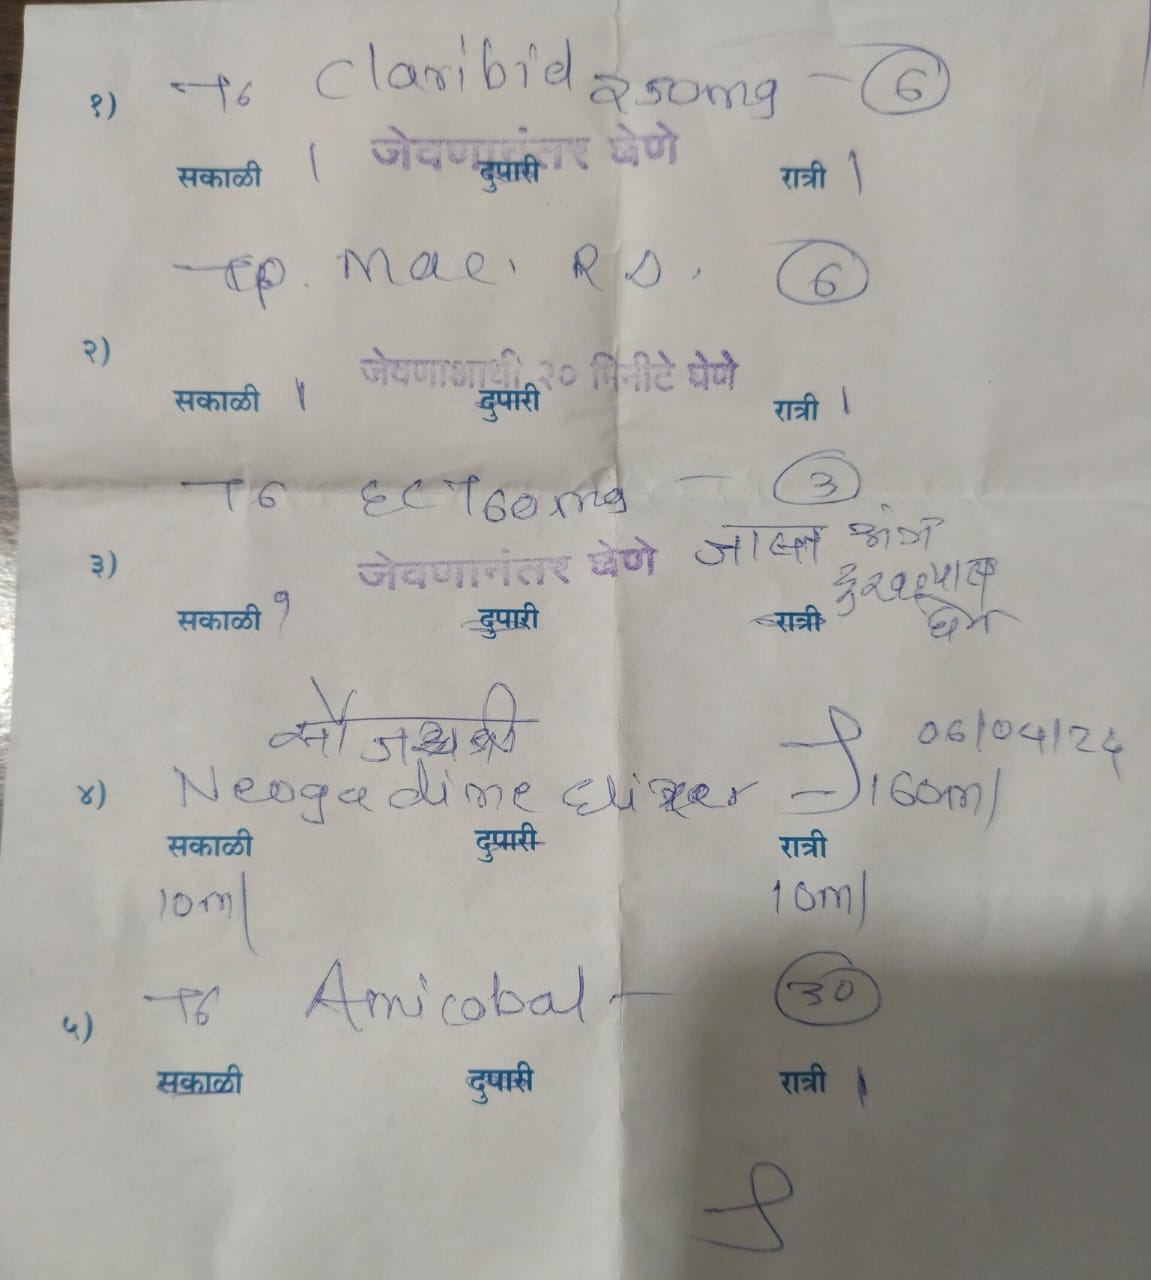 १) Tb Claribid 250mg - 6
जेवणानंतर घेणे
सकाळी 1 दुपारी रात्री 1
Cp. Mac. RD. 6
२) जेवणाआधी २० मिनीटे घेणे
सकाळी 1 दुपारी रात्री 1
Tb ECT 60mg - 3
३) जेवणानंतर घेणे जास्त अंग
दुखल्यास
सकाळी १ दुपारी रात्री घेणे
सौ जयश्री 06/04/24
४) Neogadine Elixer - 160ml
सकाळी दुपारी रात्री
10ml 10ml
५) Tb Amicobal - 30
सकाळी दुपारी रात्री 1